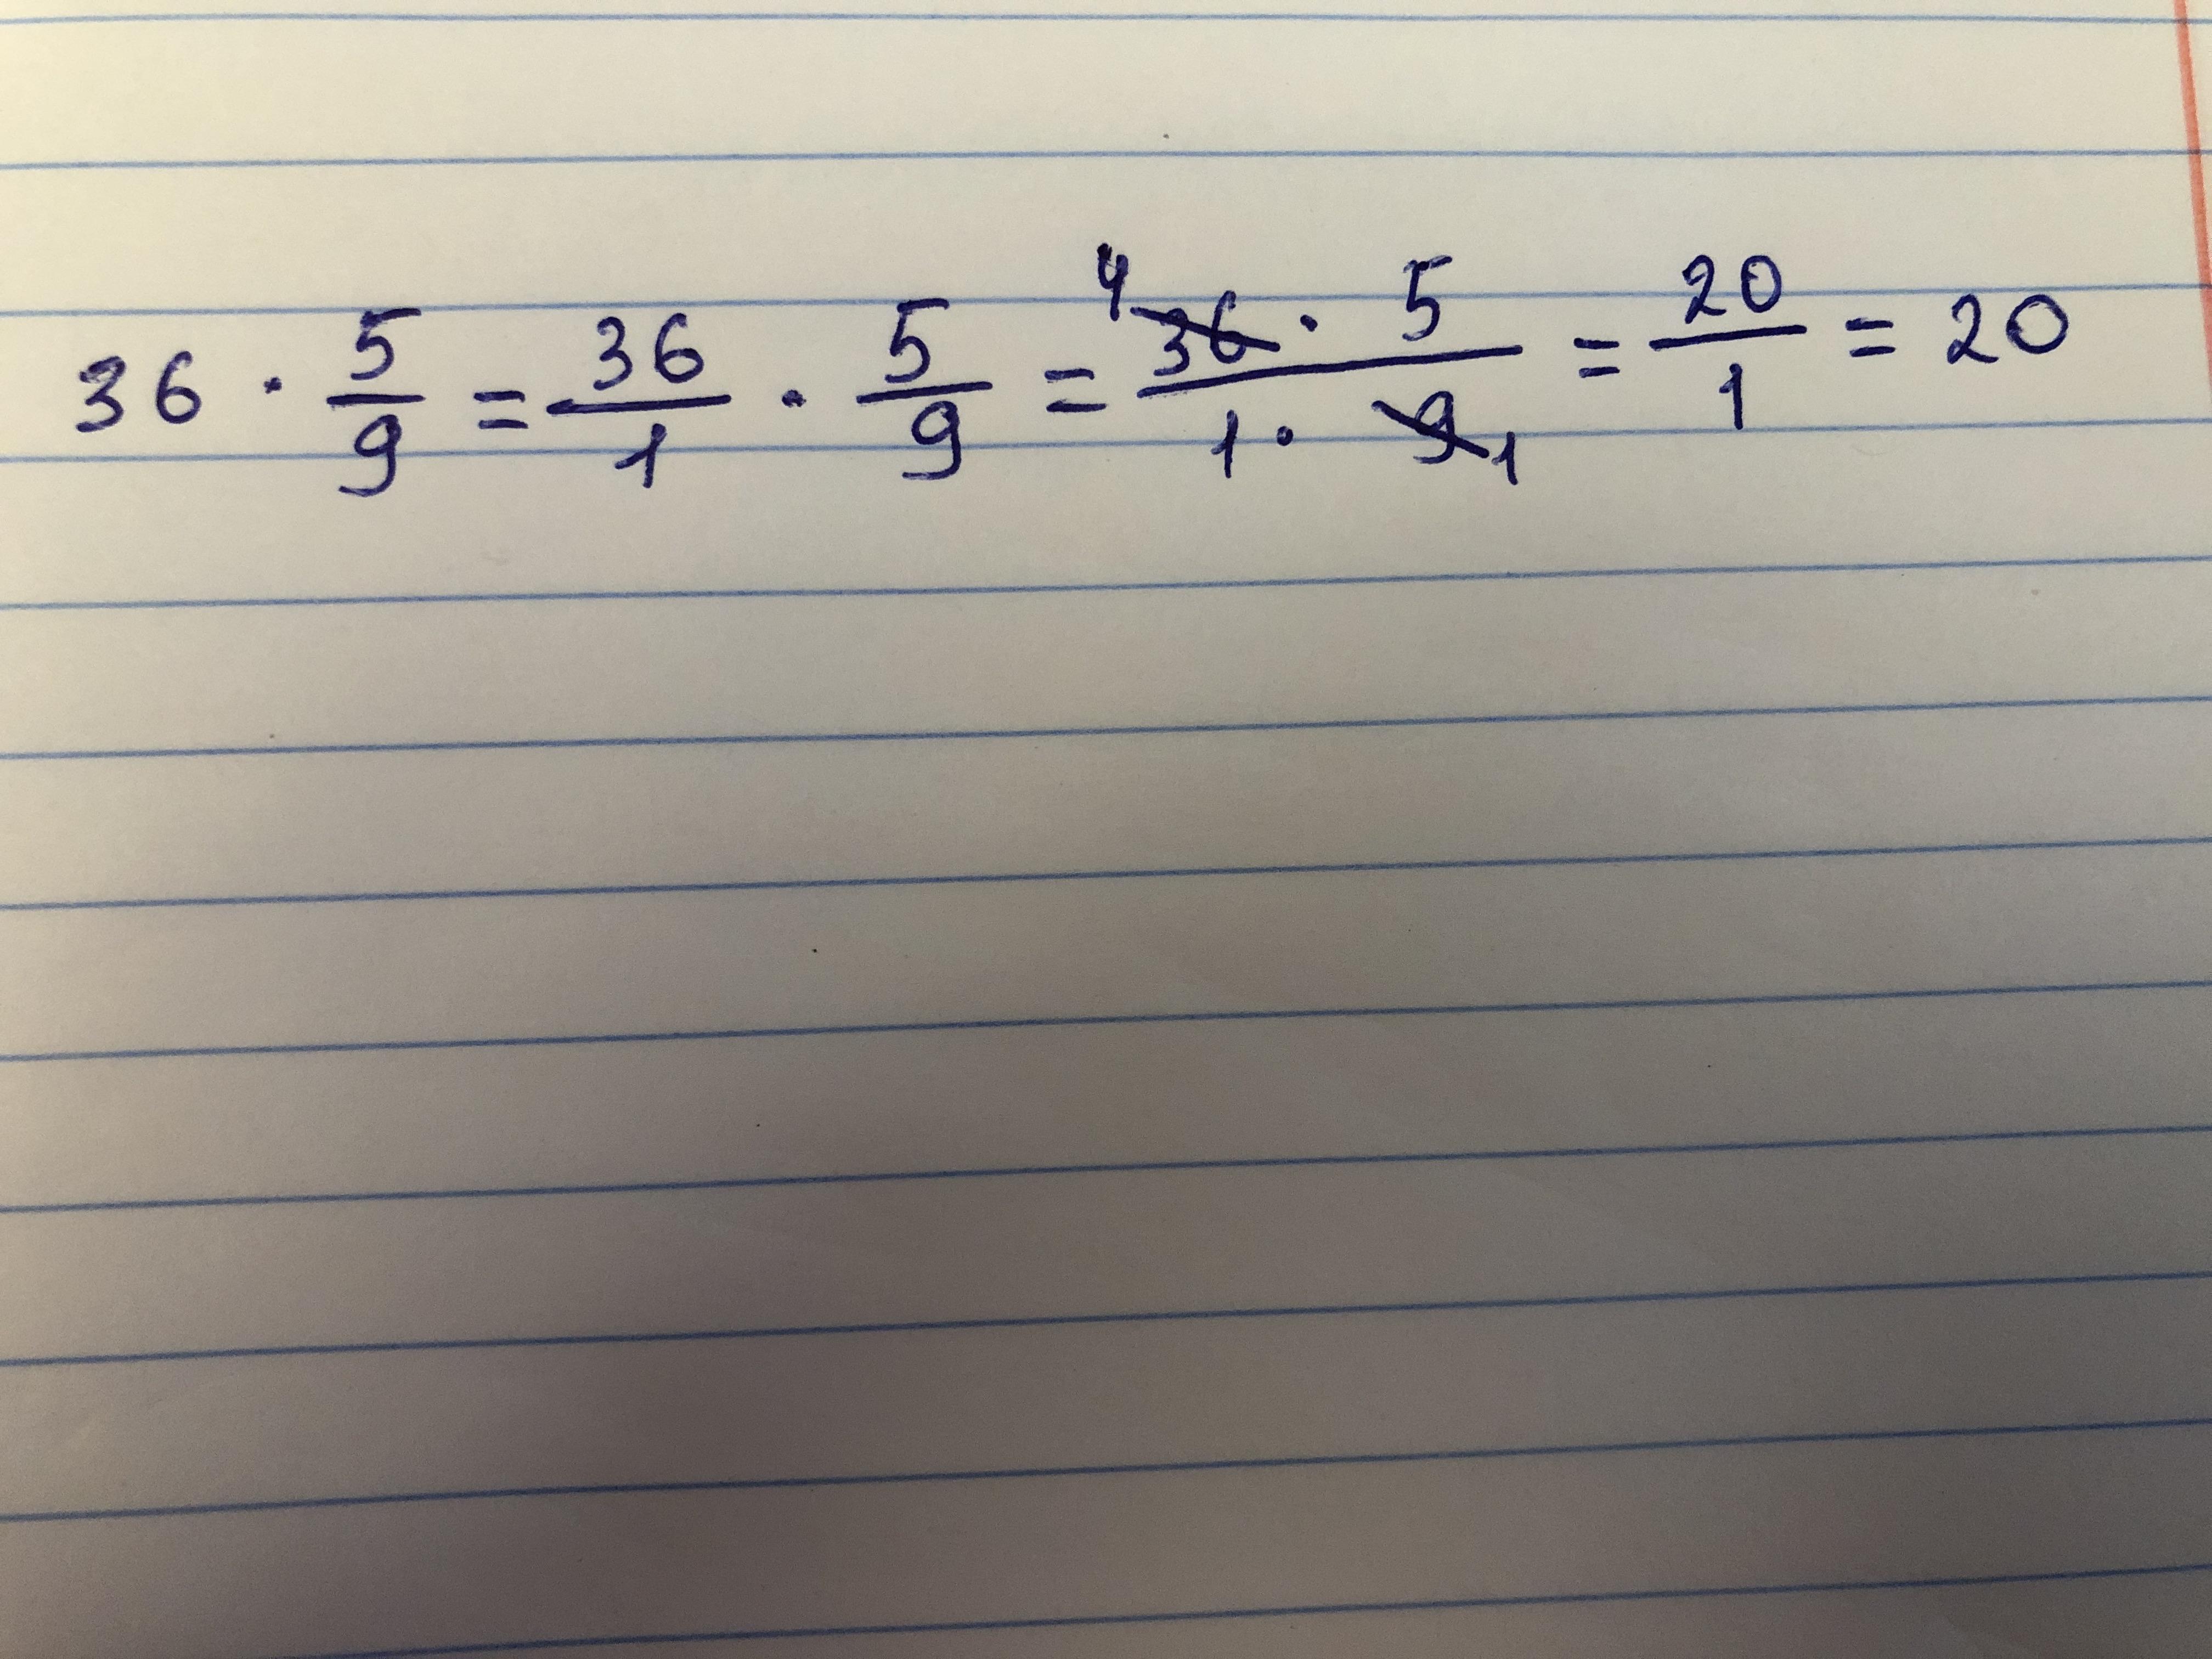 36 · 5/9 = 36/1 · 5/9 = 4 36 · 5 / 1 · 9 1 = 20/1 = 20